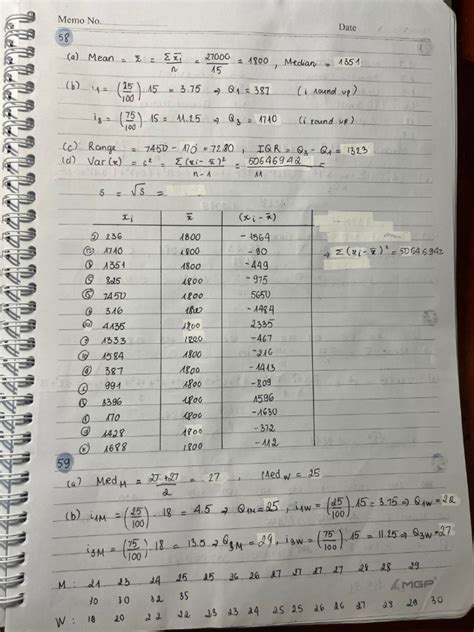 Memo No.
Date / /
58
(a) Mean = x̄ = Σxi/n = 27000/15 = 1800, Median = 1351
(b) i1 = (25/100).15 = 3.75 → Q1 = 387 (i round up)
i3 = (75/100).15 = 11.25 → Q3 = 1710 (i round up)
(c) Range = 7450 - 170 = 7280, IQR = Q3 - Q1 = 1323
(d) Var(x) = s² = Σ(xi - x̄)²/n-1 = 50646942/11 =
s = √s =
xi x̄ (xi - x̄)
236 1800 -1564
1710 1800 -90 → Σ(xi - x̄)² = 50646942
1351 1800 -449
825 1800 -975
7450 1800 5650
316 1800 -1484
4135 1800 2335
1333 1800 -467
1584 1800 -216
387 1800 -1413
991 1800 -809
3396 1800 1596
170 1800 -1630
1428 1800 -372
1688 1800 -112
59
(a) MedM = 27+27/2 = 27, MedW = 25
(b) i1M = (25/100).18 = 4.5 → Q1M = 25, i1W = (25/100).15 = 3.75 → Q1W = 22
i3M = (75/100).18 = 13.5 → Q3M = 29, i3W = (75/100).15 = 11.25 → Q3W = 27
M: 21 23 24 25 25 26 26 27 27 27 27 28 28 29
30 30 32 35
MGP
W: 18 20 22 22 23 23 24 25 25 26 27 28 29 30